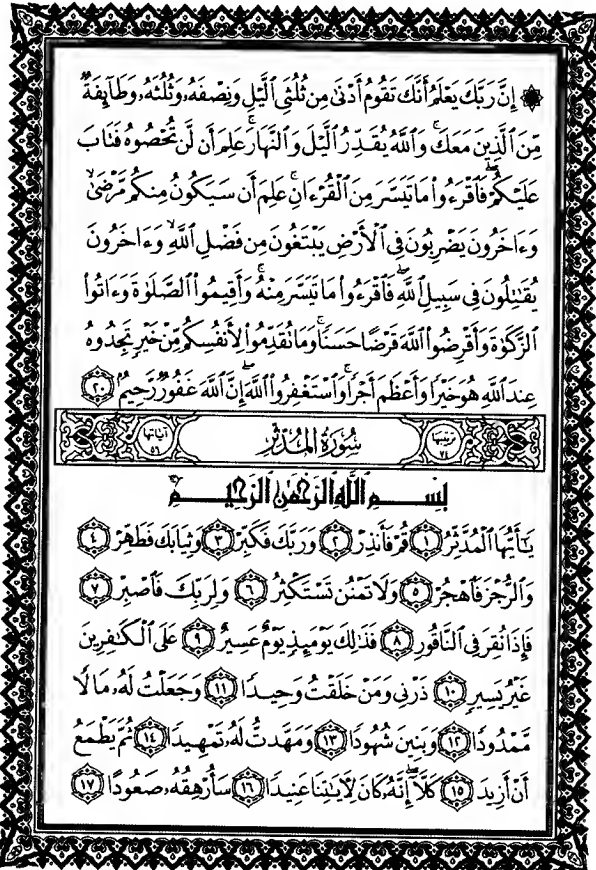 ۞ إِنَّ رَبَّكَ يَعْلَمُ أَنَّكَ تَقُومُ أَدْنَىٰ مِن ثُلُثَىِ ٱلَّيْلِ وَنِصْفَهُۥ وَثُلُثَهُۥ وَطَآئِفَةٌ
مِّنَ ٱلَّذِينَ مَعَكَ ۚ وَٱللَّهُ يُقَدِّرُ ٱلَّيْلَ وَٱلنَّهَارَ ۚ عَلِمَ أَن لَّن تُحْصُوهُ فَتَابَ
عَلَيْكُمْ ۖ فَٱقْرَءُوا۟ مَا تَيَسَّرَ مِنَ ٱلْقُرْءَانِ ۚ عَلِمَ أَن سَيَكُونُ مِنكُم مَّرْضَىٰ ۙ
وَءَاخَرُونَ يَضْرِبُونَ فِى ٱلْأَرْضِ يَبْتَغُونَ مِن فَضْلِ ٱللَّهِ ۙ وَءَاخَرُونَ
يُقَٰتِلُونَ فِى سَبِيلِ ٱللَّهِ ۖ فَٱقْرَءُوا۟ مَا تَيَسَّرَ مِنْهُ ۚ وَأَقِيمُوا۟ ٱلصَّلَوٰةَ وَءَاتُوا۟
ٱلزَّكَوٰةَ وَأَقْرِضُوا۟ ٱللَّهَ قَرْضًا حَسَنًا ۚ وَمَا تُقَدِّمُوا۟ لِأَنفُسِكُم مِّنْ خَيْرٍ تَجِدُوهُ
عِندَ ٱللَّهِ هُوَ خَيْرًا وَأَعْظَمَ أَجْرًا ۚ وَٱسْتَغْفِرُوا۟ ٱللَّهَ ۖ إِنَّ ٱللَّهَ غَفُورٌ رَّحِيمٌۢ ٢٠
ترتيبها ٧٤ سُورَةُ المُدَّثِّرِ آياتها ٥٦
بِسْمِ ٱللَّهِ ٱلرَّحْمَٰنِ ٱلرَّحِيمِ
يَٰٓأَيُّهَا ٱلْمُدَّثِّرُ ١ قُمْ فَأَنذِرْ ٢ وَرَبَّكَ فَكَبِّرْ ٣ وَثِيَابَكَ فَطَهِّرْ ٤
وَٱلرُّجْزَ فَٱهْجُرْ ٥ وَلَا تَمْنُن تَسْتَكْثِرُ ٦ وَلِرَبِّكَ فَٱصْبِرْ ٧
فَإِذَا نُقِرَ فِى ٱلنَّاقُورِ ٨ فَذَٰلِكَ يَوْمَئِذٍ يَوْمٌ عَسِيرٌ ٩ عَلَى ٱلْكَٰفِرِينَ
غَيْرُ يَسِيرٍ ١٠ ذَرْنِى وَمَنْ خَلَقْتُ وَحِيدًا ١١ وَجَعَلْتُ لَهُۥ مَالًا
مَّمْدُودًا ١٢ وَبَنِينَ شُهُودًا ١٣ وَمَهَّدتُّ لَهُۥ تَمْهِيدًا ١٤ ثُمَّ يَطْمَعُ
أَنْ أَزِيدَ ١٥ كَلَّآ ۖ إِنَّهُۥ كَانَ لِءَايَٰتِنَا عَنِيدًا ١٦ سَأُرْهِقُهُۥ صَعُودًا ١٧